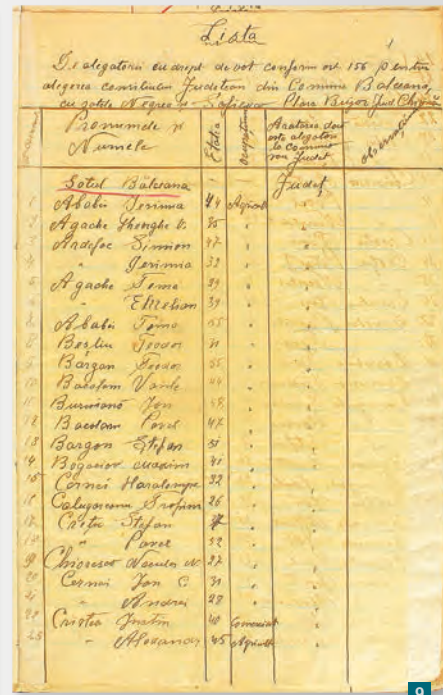 Lista
De alegatorii cu drept de vot conform ord 156 pentru
alegerea consiliului Judetean din Comuna Balceana,
cu satele Negrea si Sofieva Plasa Bujor Jud Chișinău
Pronumele și
Numele
Etatea
Ocupatiunea
Aratarea daca
este alegator
la Comuna
sau Judet
Observatiuni
Satul Bălceana Judet
1 Ababii Ierimia 44 Agricult "
2 Agache Gheorghe V. 35 " "
3 Ardefoc Simion 47 " "
4 " Ierimia 32 " "
5 Agache Toma 29 " "
6 " Emelian 39 " "
7 Ababii Toma 55 " "
8 Besliu Teodor 31 " "
9 Bargan Teodor 35 " "
10 Bacalam Vasile 44 " "
11 Ion 38 " "
12 Bacalam Pavel 47 " "
13 Bargan Ștefan 31 " "
14 Bogaciov Maxim 41 " "
15 Cornei Haralampe 32 " "
16 Calugareanu Trofim 26 " "
17 Cretu Stefan 37 " "
18 " Pavel 32 " "
19 Nicolae N 27 " "
20 Cernei Ion C. 31 " "
21 " Andrei 28 " "
22 Cristea Justin 40 Comerciat "
23 " Alexandr 45 Agricult "
9